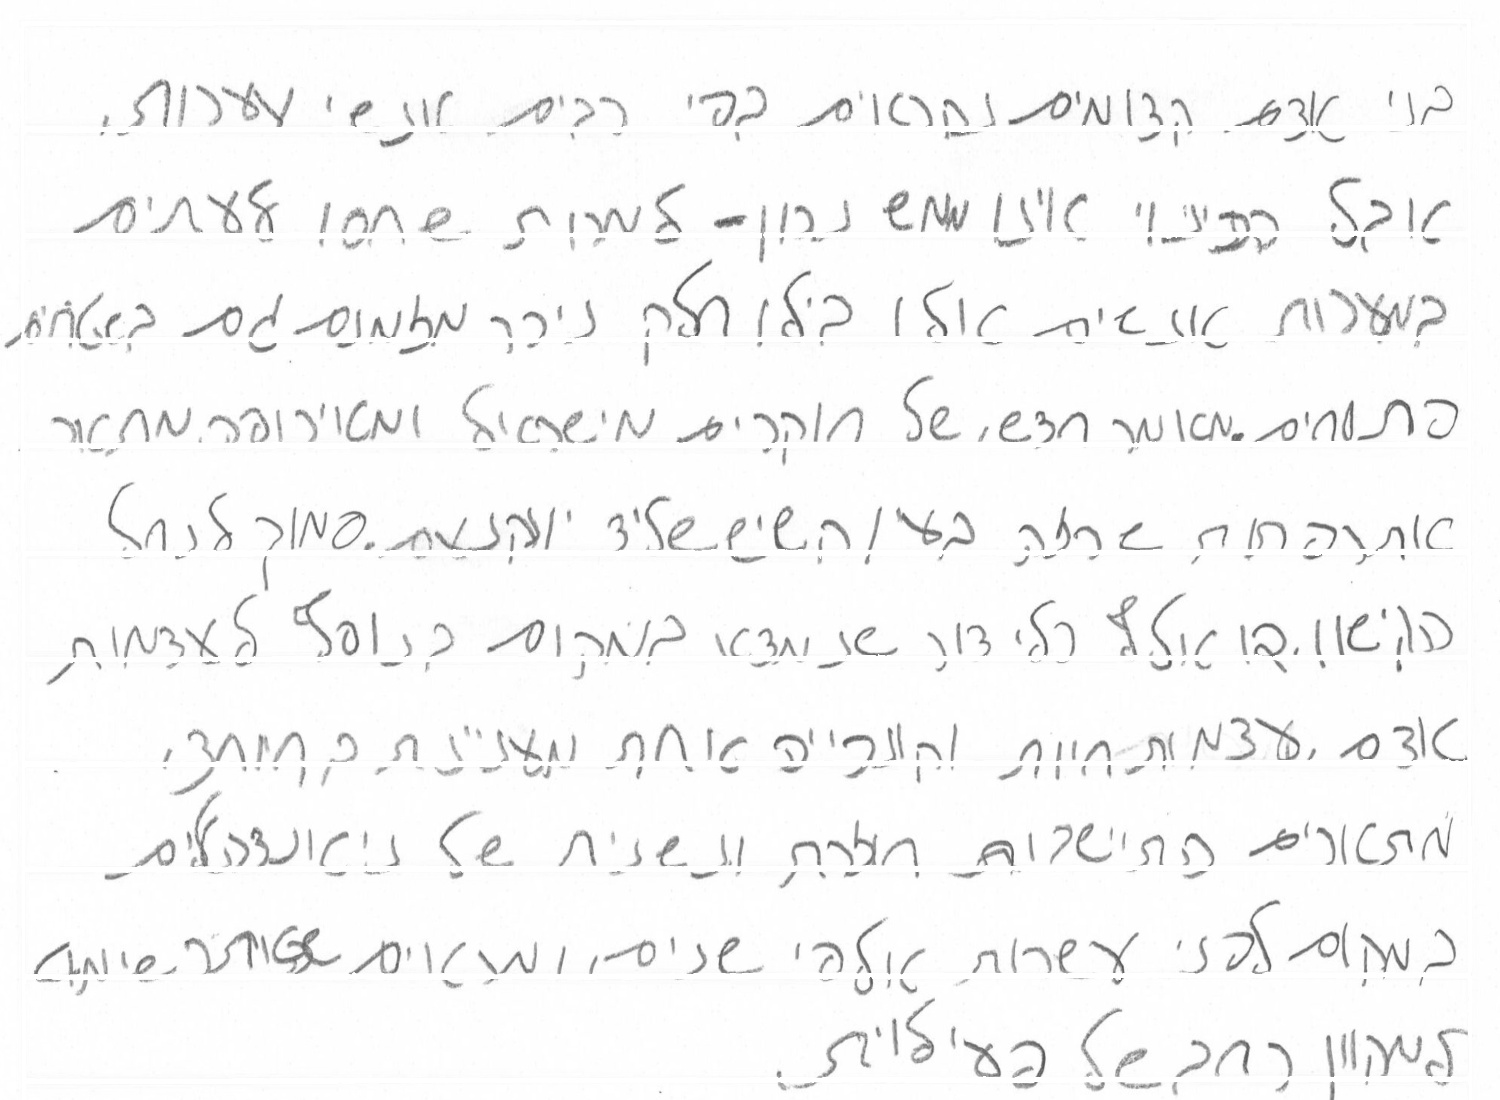 בני אדם קדומים נקראים בפי רבים אנשי מערות,
אבל הכינוי אינו ממש נכון - למרות שחסו לעתים
במערות אנשים אלו בילו חלק ניכר מזמנם גם בשטחים
פתוחים. מאמר חדש, של חוקרים מישראל ומאירופה, מתאר
אתר פתוח שהיה בעין השיש שליד יוקנעם. סמוך לנחל
הקישון, בו אלפי כלי צור שנמצאו במקום בנוסף לעצמות
אדם, עצמות חיות וקונכייה אחת מעניינת במיוחד,
מתארים התיישבות חוזרת ונשנית של ניאנדרטלים
במקום לפני עשרות אלפי שנים, ומראים שאותר שימש
למגוון רחב של פעילויות.